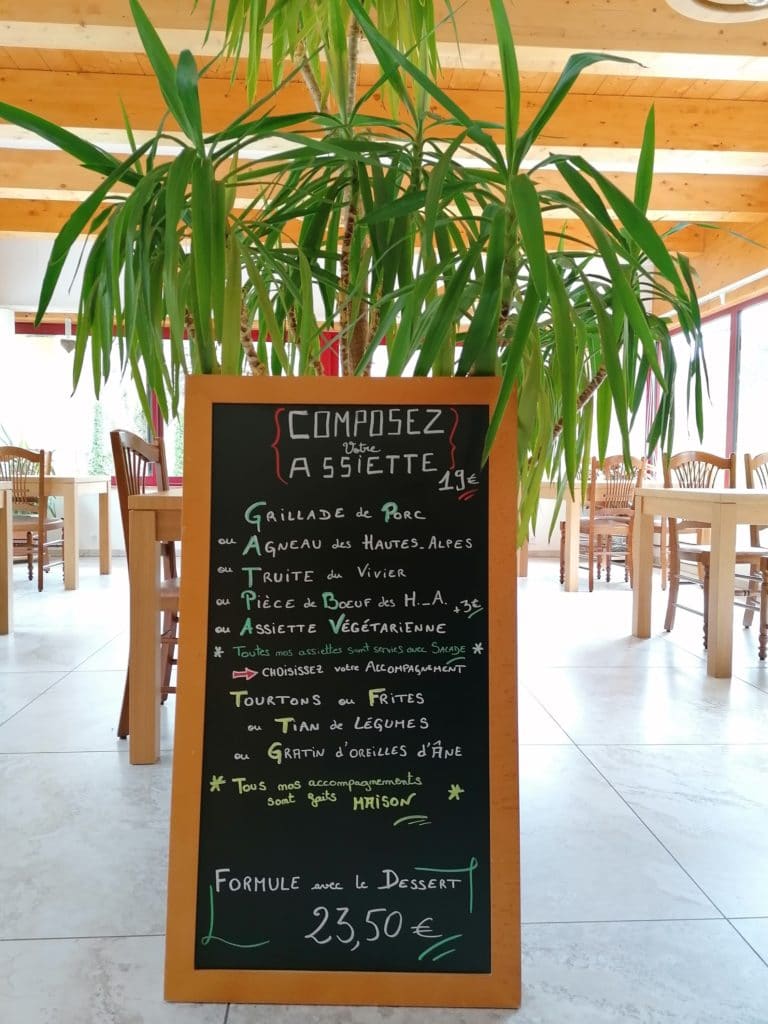 {COMPOSEZ
Votre
ASSIETTE}
19€
GRILLADE de PORC
ou AGNEAU des HAUTES-ALPES
ou TRUITE du VIVIER
ou PIÈCE de BOEUF des H_A. +3€
ou ASSIETTE VÉGÉTARIENNE
* TOUTES nos assiettes sont servies avec SALADE *
⇒ CHOISISSEZ votre ACCOMPAGNEMENT
TOURTONS ou FRITES
ou TIAN de LÉGUMES
ou GRATIN d'OREILLES d'ÂNE
* Tous nos accompagnements
sont faits MAISON *
FORMULE avec le DESSERT
23,50 €